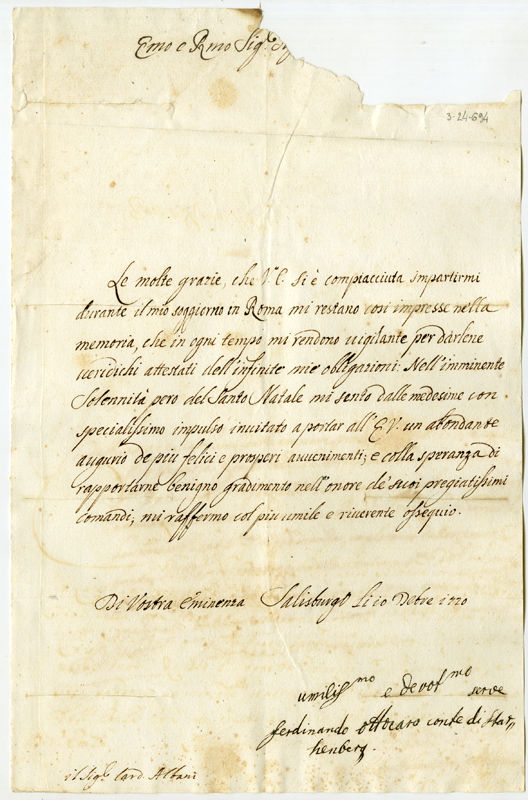 Emo e Rmo Sig.r
3-24-694
Le molte grazie, che V.E. si è compiacciuta impartirmi
durante il mio soggiorno in Roma mi restano così impresse nella
memoria, che in ogni tempo mi rendono vigilante per darlene
veridichi attestati dell'infinite mie obligazioni: Nell'imminente
Solennità pero del Santo Natale mi sento dalle medesime con
specialissimo impulso invitato a portar all'E.V. un abondante
augurio de più felici e prosperi avvenimenti; e colla speranza di
rapportarne benigno gradimento nell'onore de' suoi pregiatissimi
comandi, mi raffermo col più umile e riverente ossequio.
Di Vostra Eminenza Salisburgo li 10 Dbre 1720
umiliss.mo e devot.mo serve
ferdinando ottocaro conte di Star,,
henberg.
il Sig.r Card. Albani